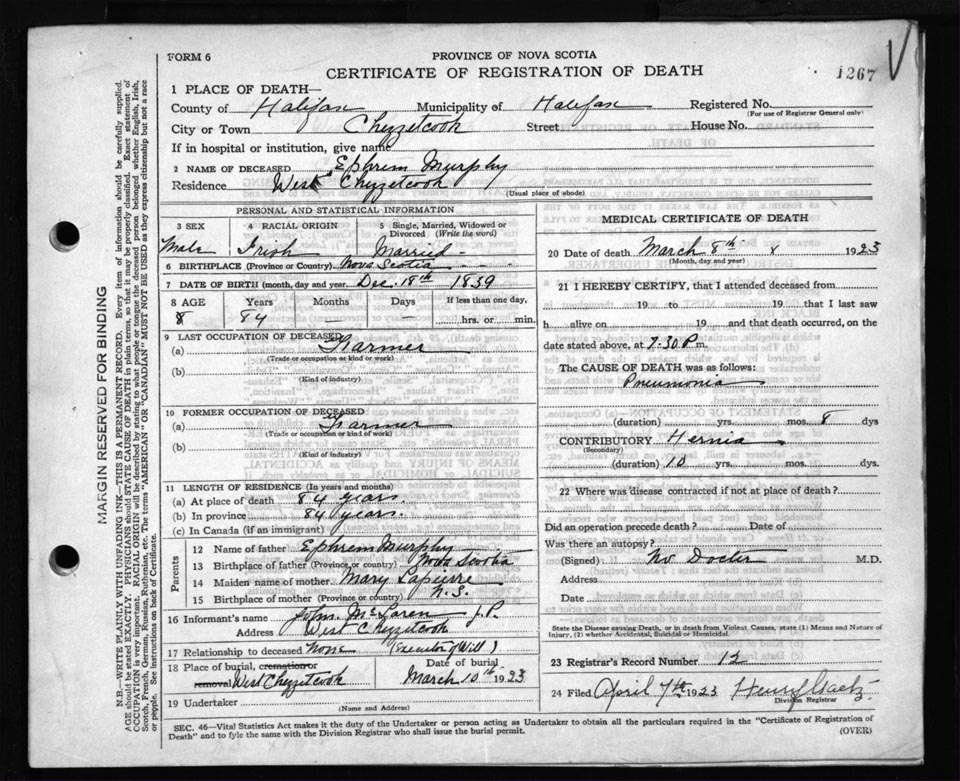 FORM 6
PROVINCE OF NOVA SCOTIA
CERTIFICATE OF REGISTRATION OF DEATH
1267 V
1 PLACE OF DEATH—
County of Halifax Municipality of Halifax Registered No.
(For use of Registrar General only)
City or Town Chezzetcook Street House No.
If in hospital or institution, give name
2 NAME OF DECEASED Ephrem Murphy
Residence West Chezzetcook
(Usual place of abode)
PERSONAL AND STATISTICAL INFORMATION
3 SEX 4 RACIAL ORIGIN 5 Single, Married, Widowed or Divorced (Write the word)
Male Irish Married
6 BIRTHPLACE (Province or Country) Nova Scotia
7 DATE OF BIRTH (month, day and year) Dec. 18th 1839
8 AGE Years Months Days If less than one day,
8 84 — hrs. or min.
9 LAST OCCUPATION OF DECEASED
(a) Farmer
(Trade or occupation or kind of work)
(b)
(Kind of industry)
10 FORMER OCCUPATION OF DECEASED
(a) Farmer
(Trade or occupation or kind of work)
(b)
(Kind of industry)
11 LENGTH OF RESIDENCE (In years and months)
(a) At place of death 84 years
(b) In province 84 years.
(c) In Canada (if an immigrant)
Parents
12 Name of father Ephrem Murphy
13 Birthplace of father (Province or country) Nova Scotia
14 Maiden name of mother Mary Lapierre
15 Birthplace of mother (Province or country) N.S.
16 Informant's name John McLaren J.P.
Address West Chezzetcook
17 Relationship to deceased None (Executor of Will)
18 Place of burial, cremation or removal West Chezzetcook Date of burial March 10th 1923
19 Undertaker
(Name and Address)
MEDICAL CERTIFICATE OF DEATH
20 Date of death March 8th x 1923
(Month, day and year)
21 I HEREBY CERTIFY, that I attended deceased from
19 to 19 that I last saw
h alive on 19 and that death occurred, on
date stated above, at 7.30 P.m.
The CAUSE OF DEATH was as follows:
Pneumonia
(duration) yrs. mos. 8 dys
CONTRIBUTORY Hernia
(Secondary)
(duration) 10 yrs. mos. dys.
22 Where was disease contracted if not at place of death?
Did an operation precede death? Date of
Was there an autopsy?
(Signed) No Docter M.D.
Address
Date
State the Disease causing Death, or in death from Violent Causes, state (1) Means and Nature of
Injury, (2) whether Accidental, Suicidal or Homicidal.
23 Registrar's Record Number 12
24 Filed April 7th 1923 Henry Gaetz
Division Registrar
SEC. 46—Vital Statistics Act makes it the duty of the Undertaker or person acting as Undertaker to obtain all the particulars required in the "Certificate of Registration of
Death" and to file the same with the Division Registrar who shall issue the burial permit. (OVER)
MARGIN RESERVED FOR BINDING
N.B.—WRITE PLAINLY WITH UNFADING INK—THIS IS A PERMANENT RECORD. Every item of information should be carefully supplied.
AGE should be stated EXACTLY. PHYSICIANS should STATE CAUSE OF DEATH in plain terms, so that it may be properly classified. Exact statement of
OCCUPATION is very important. RACIAL ORIGIN will be described by stating to what people or tongue the deceased person belonged whether English, Irish,
Scotch, French, German, Russian, Ruthenian, etc. The terms "AMERICAN" OR "CANADIAN" MUST NOT BE USED as they express citizenship but not a race
or people. See instructions on back of Certificate.